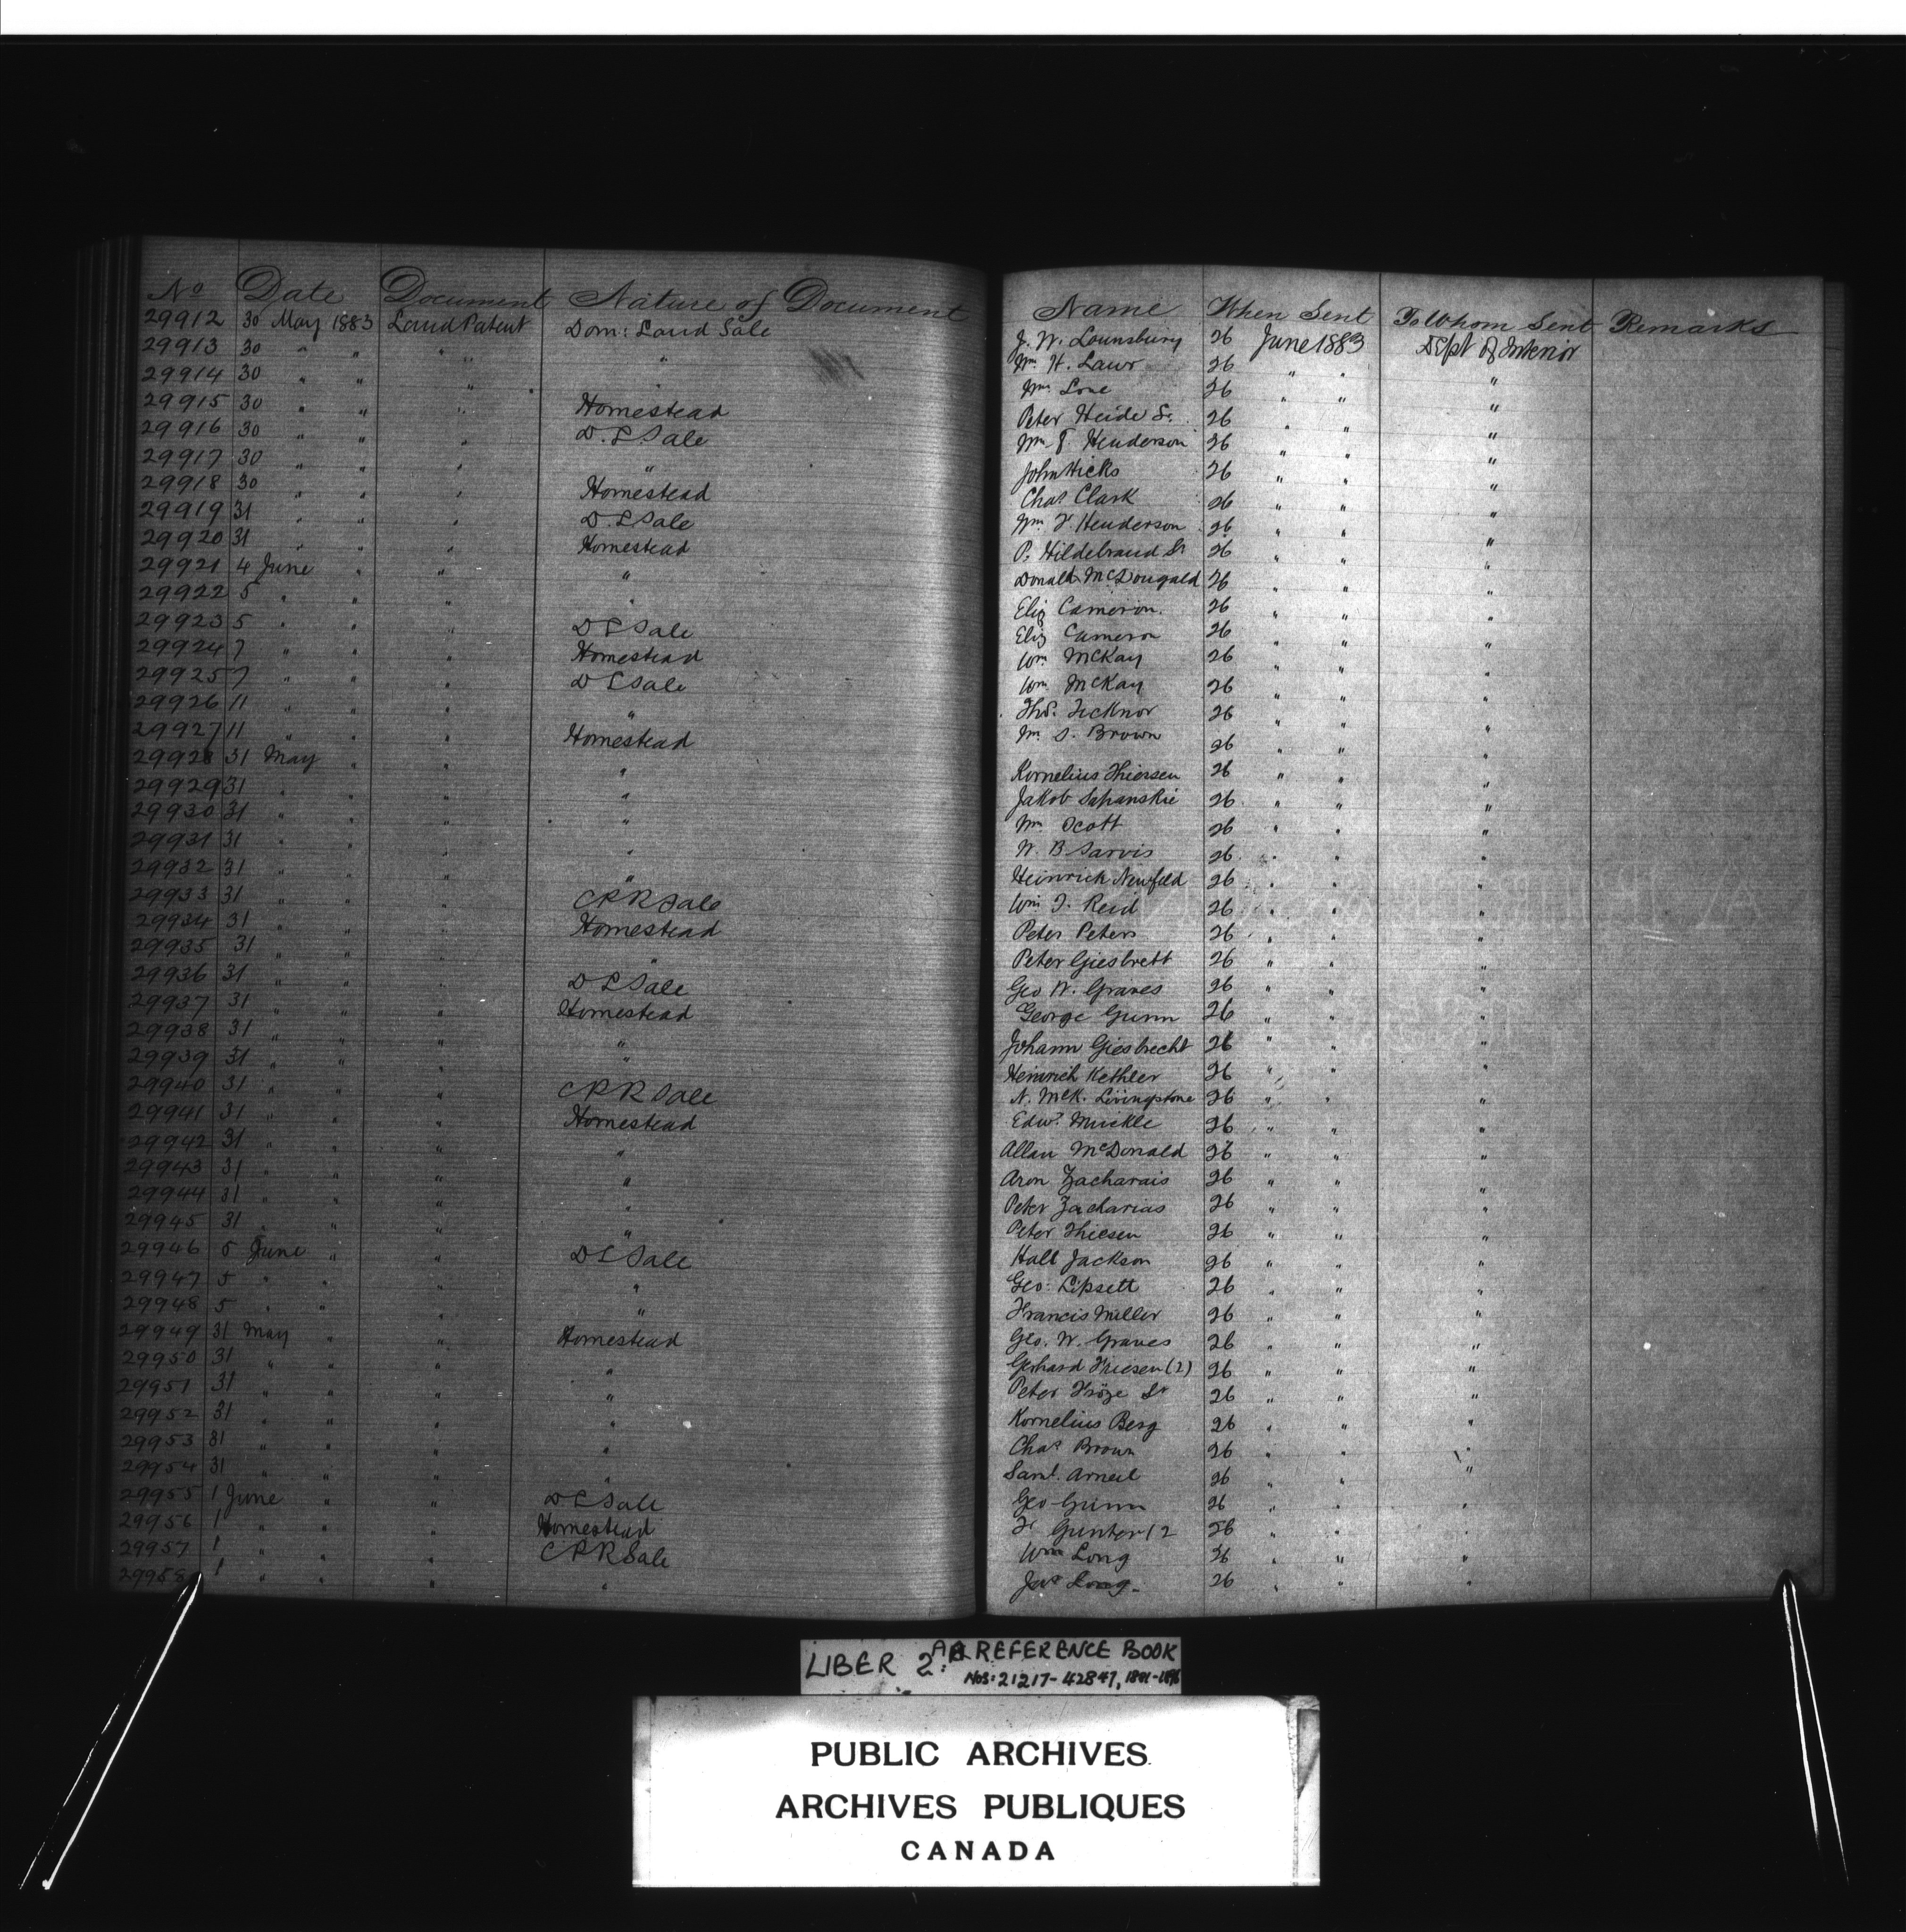 No Date Document Nature of Document Name When Sent To Whom Sent Remarks
29912 30 May 1883 Land Patent Dom: Land Sale J. W. Lounsbury 26 June 1883 Dept of Interior
29913 30 " " " " Wm H. Lawr 26 " " "
29914 30 " " " " Wm Lone 26 " " "
29915 30 " " " Homestead Peter Heide Sr. 26 " " "
29916 30 " " " D. L Sale Wm F Henderson 26 " " "
29917 30 " " " " John Hicks 26 " " "
29918 30 " " " Homestead Chas Clark 26 " " "
29919 31 " " " D. L Sale Wm F. Henderson 26 " " "
29920 31 " " " Homestead P. Hildebrand Sr 26 " " "
29921 4 June " " " Donald McDougald 26 " " "
29922 5 " " " " Eliz Cameron. 26 " " "
29923 5 " " " D L Sale Eliz Cameron 26 " " "
29924 7 " " " Homestead Wm McKay 26 " " "
29925 7 " " " D L Sale Wm McKay 26 " " "
29926 11 " " " " Thos. Ticknor 26 " " "
29927 11 " " " Homestead Wm S. Brown 26 " " "
29928 31 May " " " Kornelius Thiessen 26 " " "
29929 31 " " " " Jakob Sapanskie 26 " " "
29930 31 " " " " Wm Scott 26 " " "
29931 31 " " " " W. B Sarvis 26 " " "
29932 31 " " " " Heinrich Neufeld 26 " " "
29933 31 " " " C P R Sale Wm J. Reid 26 " " "
29934 31 " " " Homestead Peter Peters 26 " " "
29935 31 " " " " Peter Giesbrett 26 " " "
29936 31 " " " D L Sale Geo W. Graves 26 " " "
29937 31 " " " Homestead George Gunn 26 " " "
29938 31 " " " " Johann Giesbrecht 26 " " "
29939 31 " " " " Heinrich Kethler 26 " " "
29940 31 " " " C P R Sale N. McK. Livingstone 26 " " "
29941 31 " " " Homestead Edwd Muckle 26 " " "
29942 31 " " " " Allan McDonald 26 " " "
29943 31 " " " " Aron Zacharais 26 " " "
29944 31 " " " " Peter Zacharias 26 " " "
29945 31 " " " " Peter Thiesen 26 " " "
29946 5 June " " D L Sale Hall Jackson 26 " " "
29947 5 " " " " Geo. Lipsett 26 " " "
29948 5 " " " " Francis Miller 26 " " "
29949 31 May " " Homestead Geo. W. Graves 26 " " "
29950 31 " " " " Gerhard Friesen (2) 26 " " "
29951 31 " " " " Peter Fröze Sr 26 " " "
29952 31 " " " " Kornelius Berg 26 " " "
29953 31 " " " " Chas Brown 26 " " "
29954 31 " " " " Saml. Arneil 26 " " "
29955 1 June " " D L Sale Geo Gunn 26 " " "
29956 1 " " " Homestead F Gunter 12 26 " " "
29957 1 " " " C P R Sale Wm Long 26 " " "
29958 1 " " " " Jas Long 26 " " "
LIBER 2: AA REFERENCE BOOK
Nos: 21217-42847,
PUBLIC ARCHIVES
ARCHIVES PUBLIQUES
CANADA